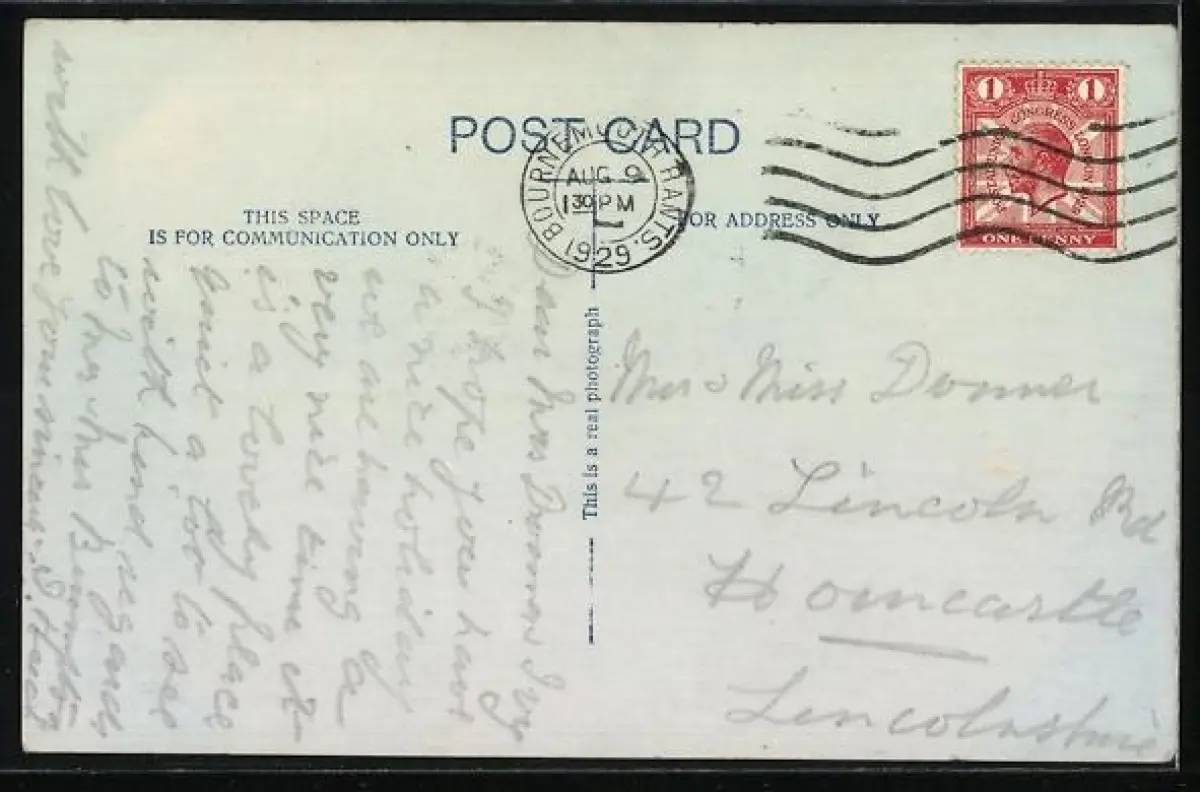 POST CARD
BOURNEMOUTH HANTS.
AUG 9
1 30 PM
1929
1 1
POSTAL UNION CONGRESS LONDON 1929
ONE PENNY
THIS SPACE
IS FOR COMMUNICATION ONLY
FOR ADDRESS ONLY
This is a real photograph
Dear Mrs Donner
I hope you have
a nice holiday
we are having a
very nice time it
is a lovely place
but a lot to see
with kind regards
to Mrs & Miss
with love
Mrs & Miss Donner
42 Lincoln Rd
Horncastle
Lincolnshire